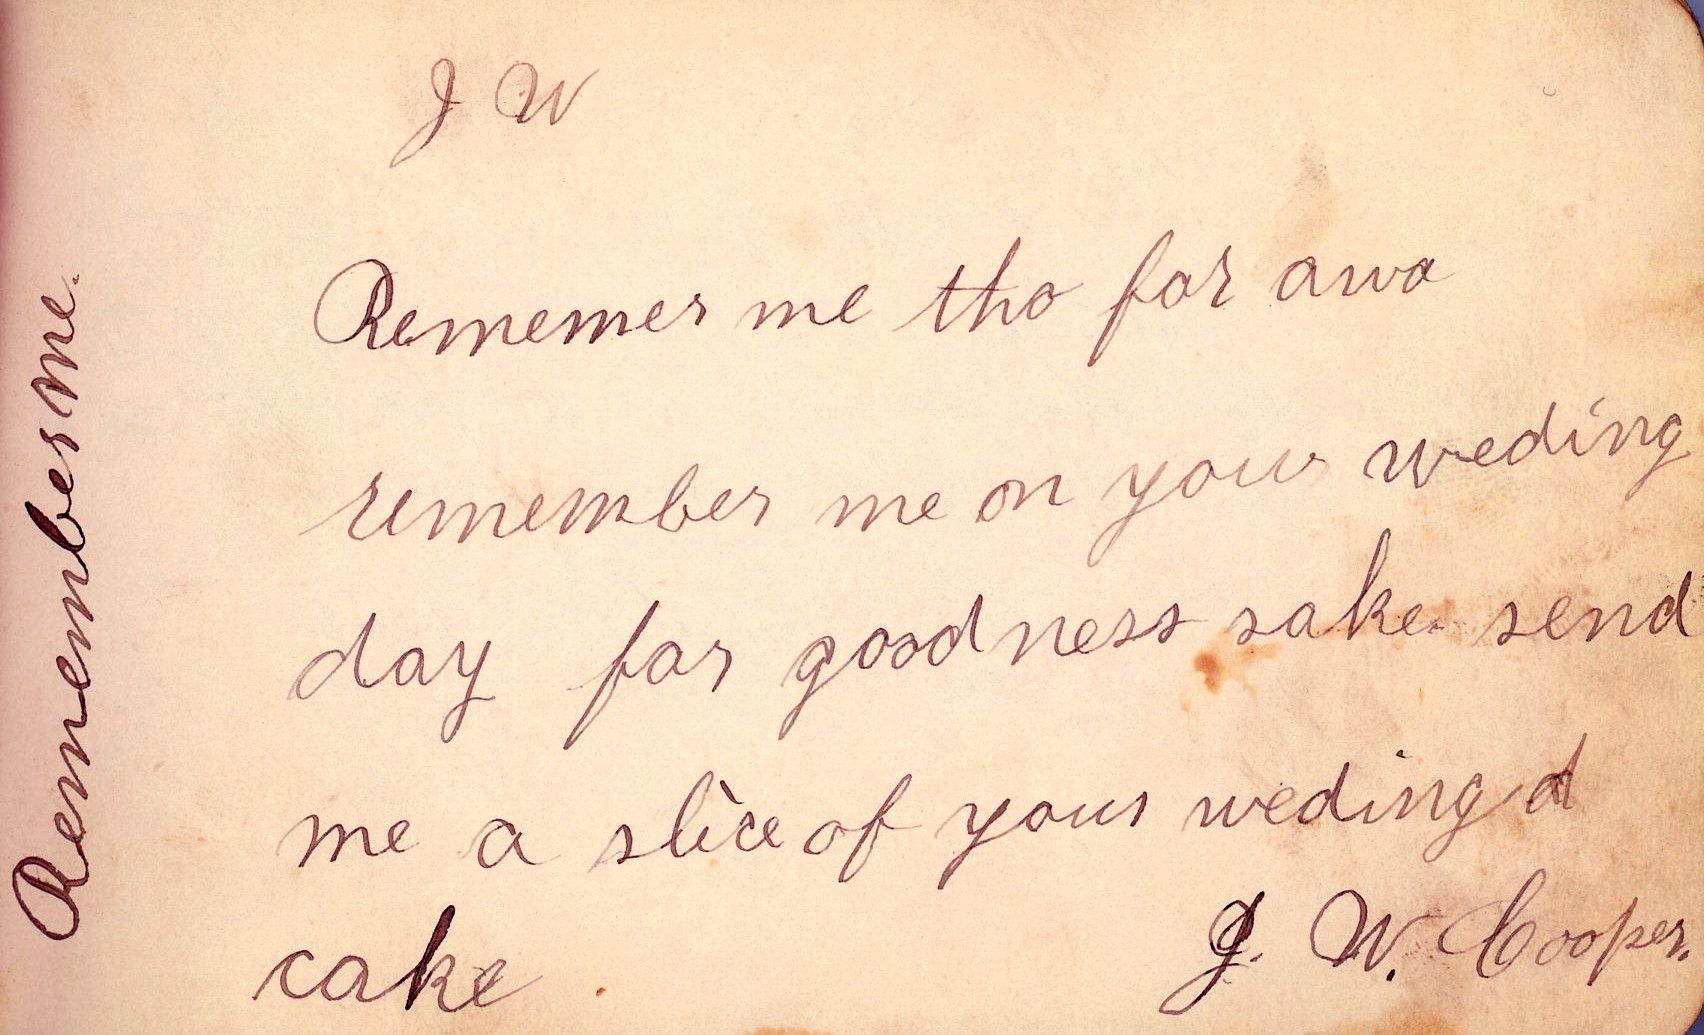 J W
Rememer me tho far awa
remember me on your weding
day for goodness sake send
me a slice of your weding d
cake.
J. W. Cooper.
Remember me.